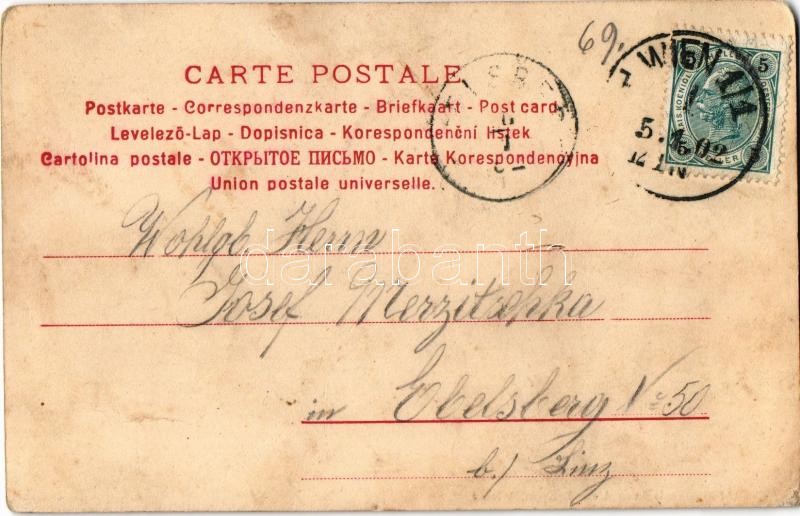 69.
CARTE POSTALE
Postkarte - Correspondenzkarte - Briefkaart - Post card
Levelező-Lap - Dopisnica - Korespondenční lístek
Cartolina postale - ОТКРЫТОЕ ПИСЬМО - Karta Korespondencyjna
Union postale universelle.
WIEN 1/1
5.
02
12 1N
5
5
Wohlgb. Herrn
darabanth
Josef Merzitschka
in Ebelsberg No 50
b./ Linz